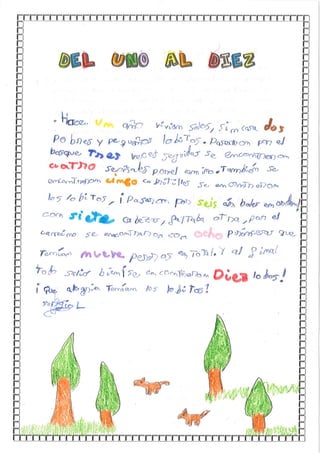 DEL UNO AL DIEZ
. Hace um año vivian solos, sim casa dos
pobres y pequeños lobitos. Pasearon por el
bosque tres veces seguidas se encontraron
cuatro por el camino. También se
encontraron cimco se encontraron
los lobitos, ¡ Pasaron por seis
con siete cabezas, faltaba otra, por el
camino se encontraron con ocho que
Temian mueve en Total. Y al final
todo salio bien ¡Se encontraron Diez lobos!
¡ Que alegria Temian los lobitos!